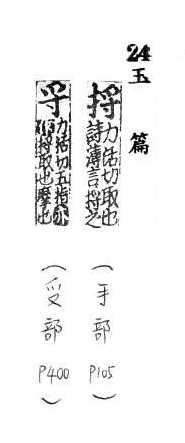 24 玉篇
捋 力活切取也
詩薄言捋之
(手部 P105)
寽 力活切五指
捋取也摩也
(受部 P400)